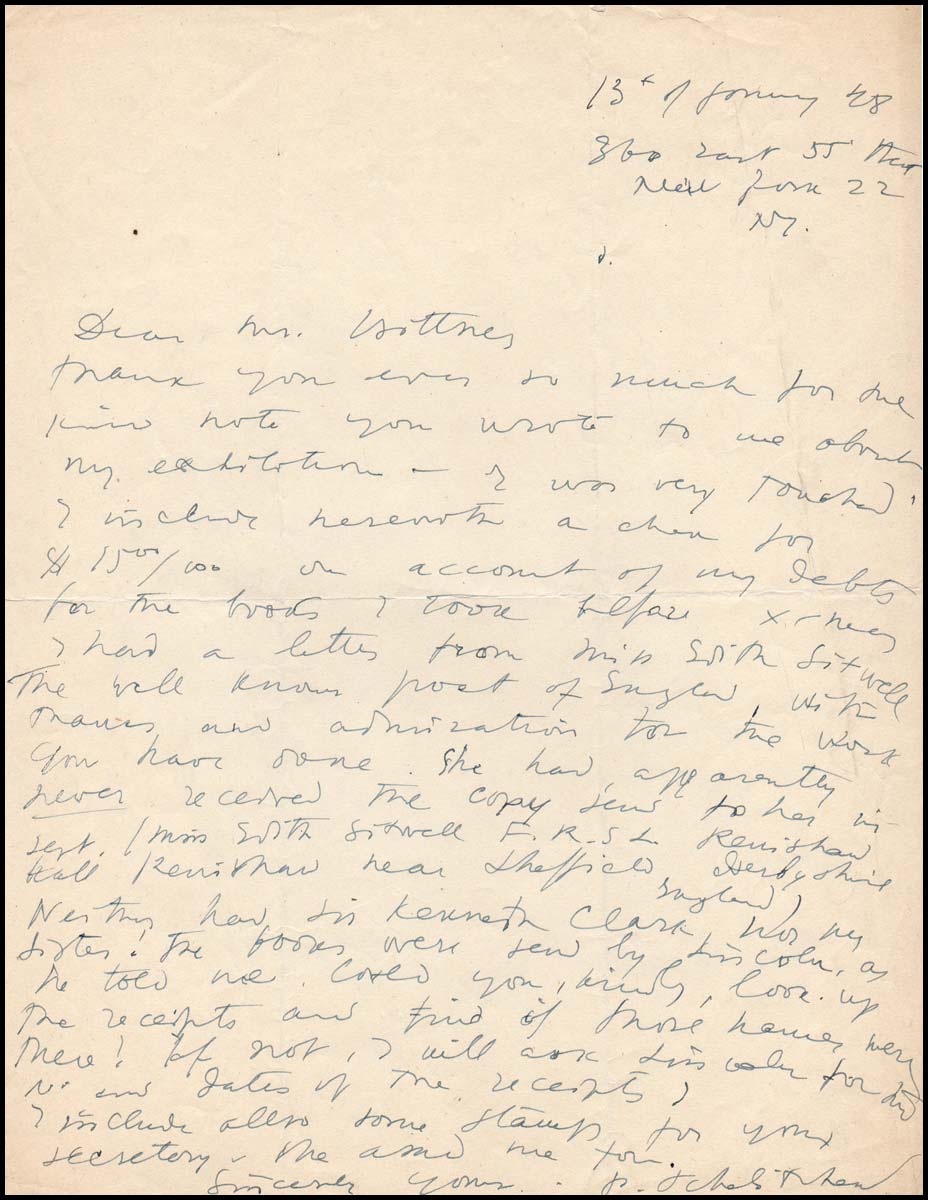 13t of January 48
360 East 55 Street
New York 22
NY.
Dear Mr. Wittney
thank you ever so much for the
kind note you wrote to me about
my exhibition – I was very touched.
I include herewith a check for
$ on account of my debts
for the books I took before x-mas
I had a letter from Miss Edith Sitwell
the well known poet of England, with
thanks and admiration for the work
you have done. She had apparently
never received the copy send to her in
sept. (Miss Edith Sitwell F.R.S.L. Renishaw
Hall Renishaw near Sheffield, Derbyshire
England)
Neither had Sir Kenneth Clark, nor my
sister! The books were send by Lincoln, as
he told me. Could you, kindly, look up
the receipts and find if those names were
there? If not, I will ask Lincoln for the
No and dates of the receipts,
I include allso some stamps for your
secretary – she asked me for.
Sincerely yours. P. Tchelitchew